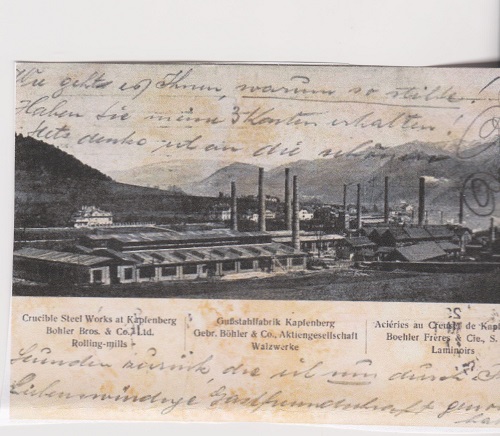 Wie gehts es Ihnen, warum so stille!
Haben Sie meine 3 Karten erhalten!
Stets denke ich an die schönen
Crucible Steel Works at Kapfenberg
Bohler Bros. & Co. Ltd.
Rolling-mills
Gußstahlfabrik Kapfenberg
Gebr. Böhler & Co., Aktiengesellschaft
Walzwerke
Aciéries au Creuset de Kap
Boehler Frères & Cie., S.
Laminoirs
Stunden zurück die ich nur durch
Liebenswürdige Gastfreundschaft